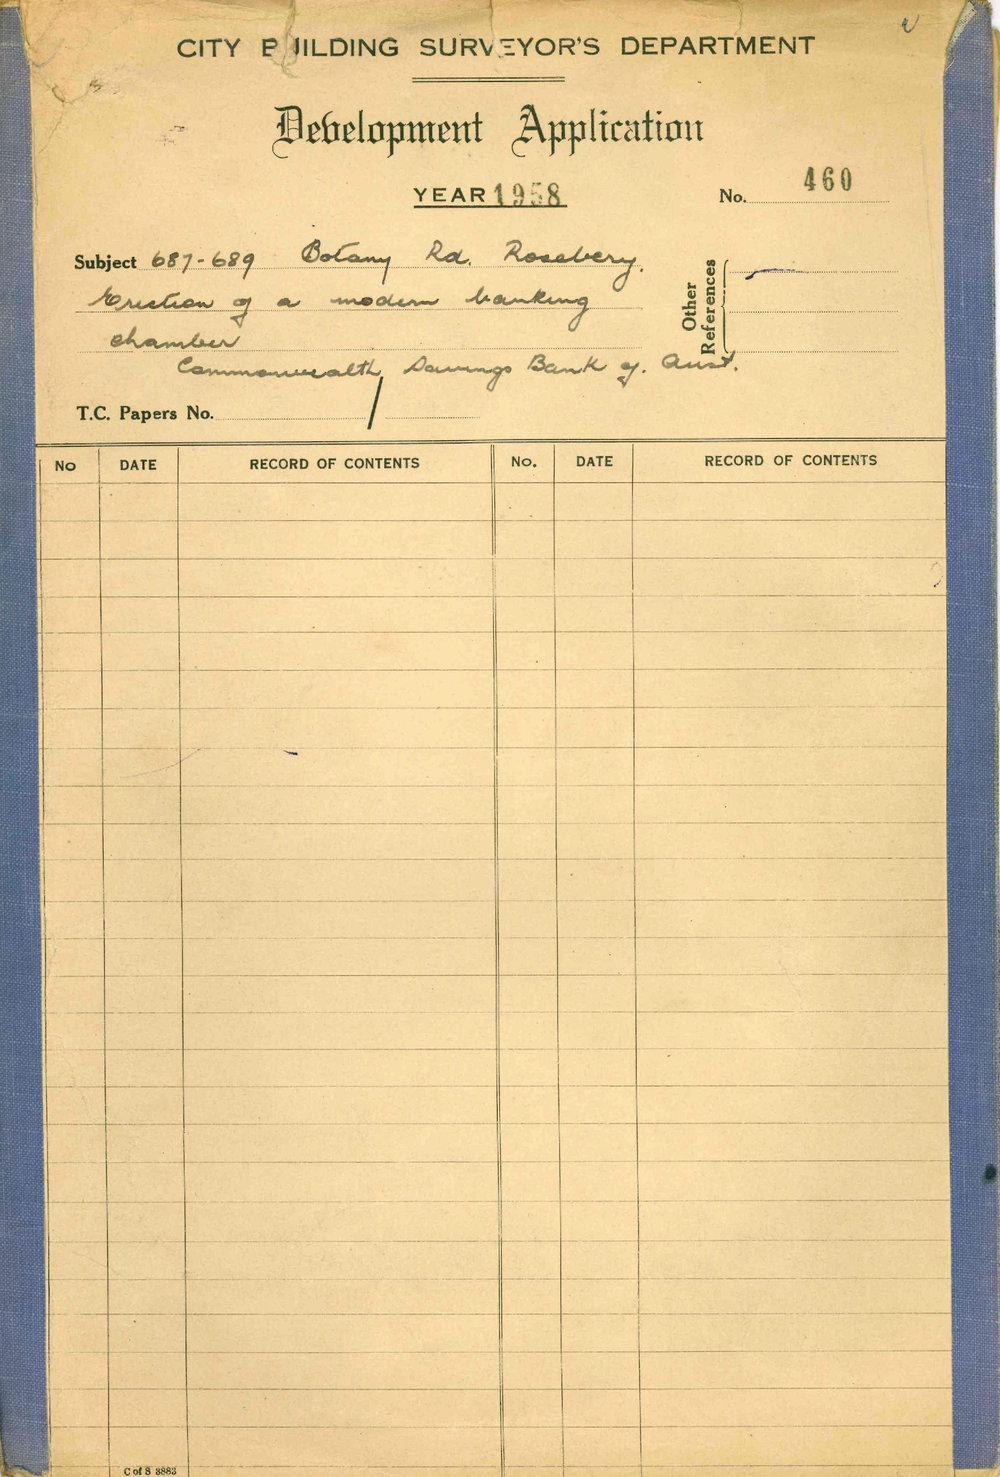 CITY BUILDING SURVEYOR'S DEPARTMENT
Development Application
YEAR 1958
No. 460
Subject 687-689 Botany Rd. Rosebery.
Erection of a modern banking
chamber
Commonwealth Savings Bank of. Aust.
Other References
T.C. Papers No. /
No DATE RECORD OF CONTENTS No. DATE RECORD OF CONTENTS
C of S 3883